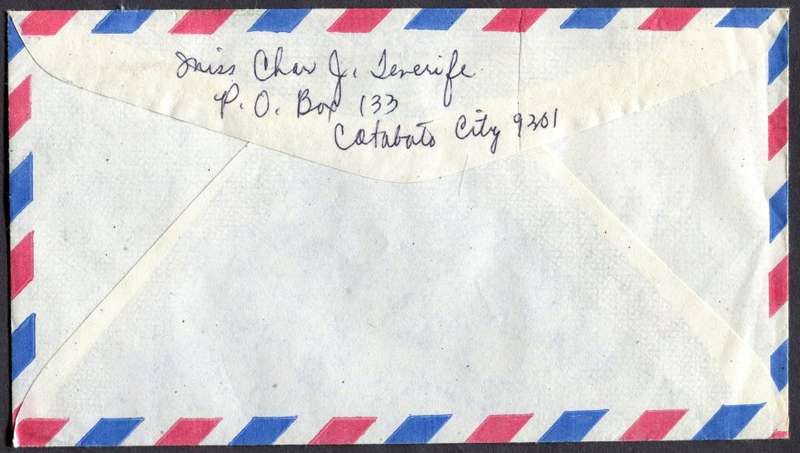 Miss Char J. Tenerife
P.O. Box 133
Cotabato City 9301